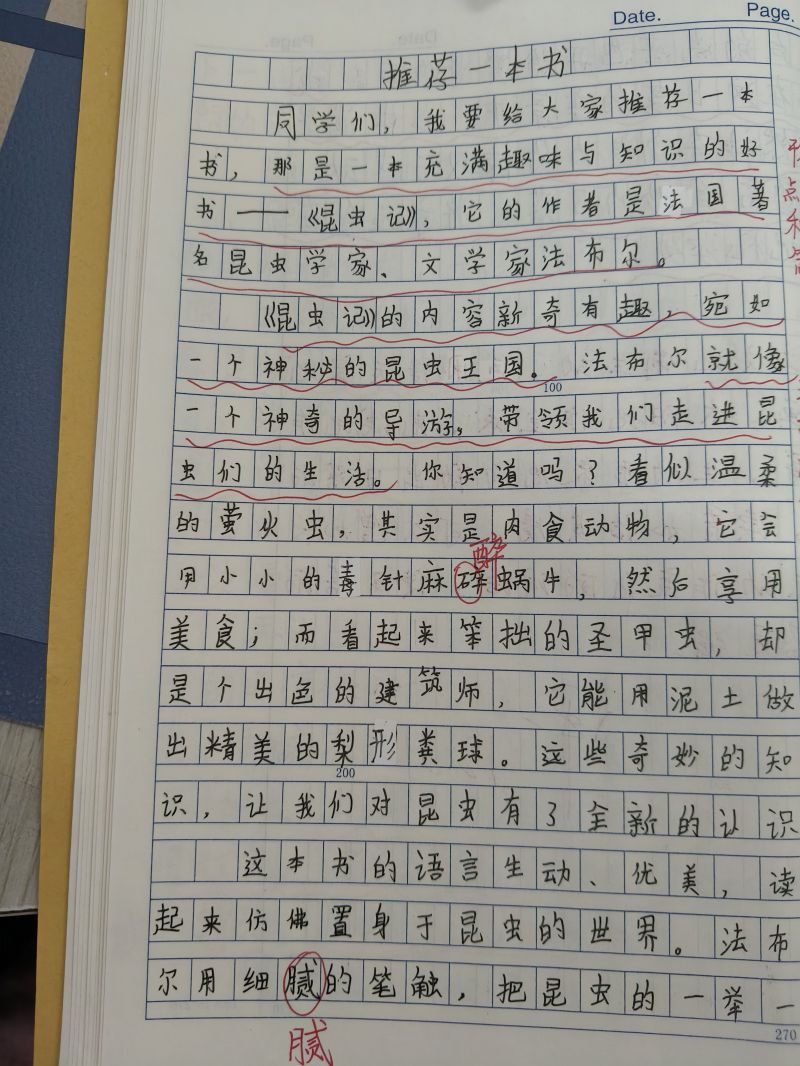 Date.
Page.
推荐一本书
同学们，我要给大家推荐一本
书，那是一本充满趣味与知识的好
书——《昆虫记》，它的作者是法国著
名昆虫学家、文学家法布尔。
《昆虫记》的内容新奇有趣，宛如
一个神秘的昆虫王国。法布尔就像
100
一个神奇的导游，带领我们走进昆
虫们的生活。你知道吗？看似温柔
的萤火虫，其实是肉食动物，它会
醉
用小小的毒针麻碎蜗牛，然后享用
美食；而看起来笨拙的圣甲虫，却
是个出色的建筑师，它能用泥土做
出精美的梨形粪球。这些奇妙的知
200
识，让我们对昆虫有了全新的认识
这本书的语言生动、优美，读
起来仿佛置身于昆虫的世界。法布
尔用细腻的笔触，把昆虫的一举一
腻
270